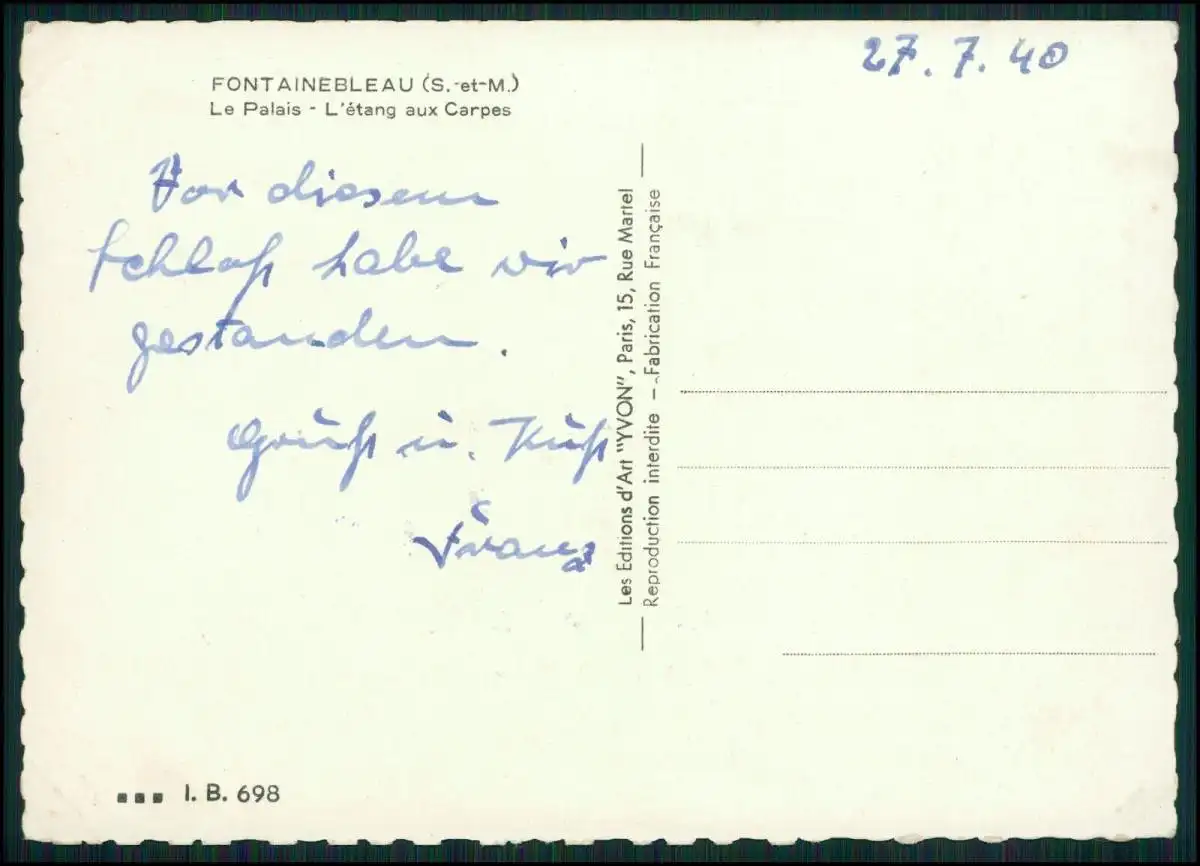 27.7.40
FONTAINEBLEAU (S.-et-M.)
Le Palais - L'étang aux Carpes
Vor diesem
Schloß habe wir
gestanden.
Gruß u. Kuß
Franz
Les Editions d'Art "YVON", Paris, 15, Rue Martel
Reproduction interdite — Fabrication Française
I. B. 698